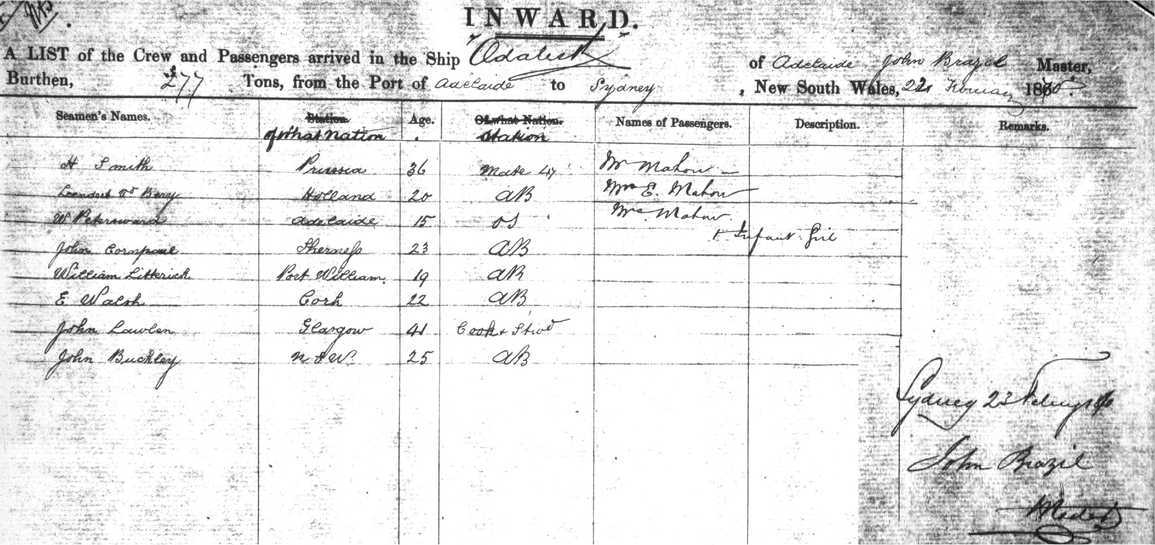 INWARD.
A LIST of the Crew and Passengers arrived in the Ship Odalisk of Adelaide John Brazil Master,
Burthen, 277 Tons, from the Port of Adelaide to Sydney, New South Wales, 22 February 18
Seamen's Names. Station Age. Of what Nation. Names of Passengers. Description. Remarks.
of what Nation Station
H Smith Prussia 36 Mate Mr Mahow
Holland 20 AB Mrs E. Mahow
W Peterward Adelaide 15 OS Mahow
John Sherness 23 AB & Infant Girl
William Litterick Port William 19 AB
E Walsh Cork 22 AB
John Lawlen Glasgow 41 Cook & Stwd
John Buckley N S W. 25 AB
Sydney 23
John Brazil